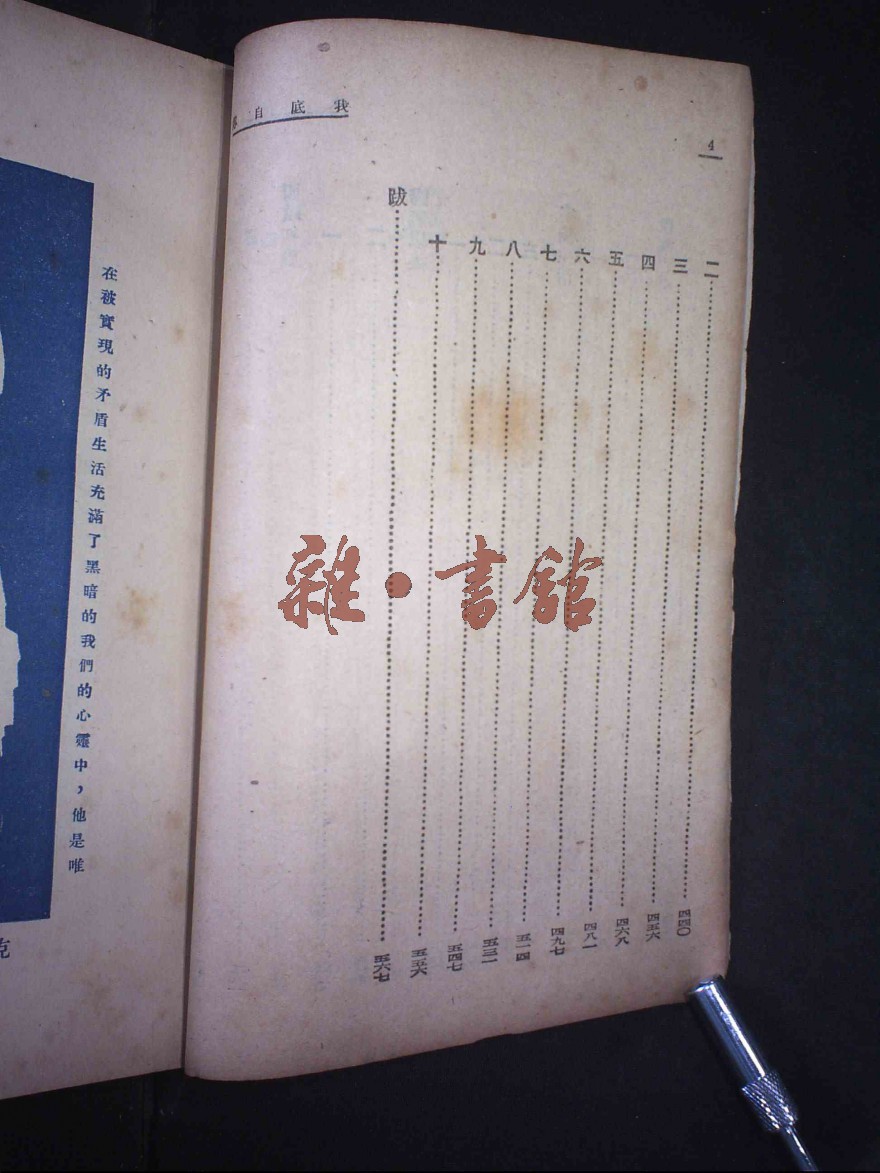 我底自
4
二……四四〇
三……四五六
四……四六八
五……四八一
六……四九七
七……五一四
八……五三一
九……五四七
十……五五六
跋……五六七
在被實現的矛盾生活充滿了黑暗的我們的心靈中，他是唯
克
雜·書館